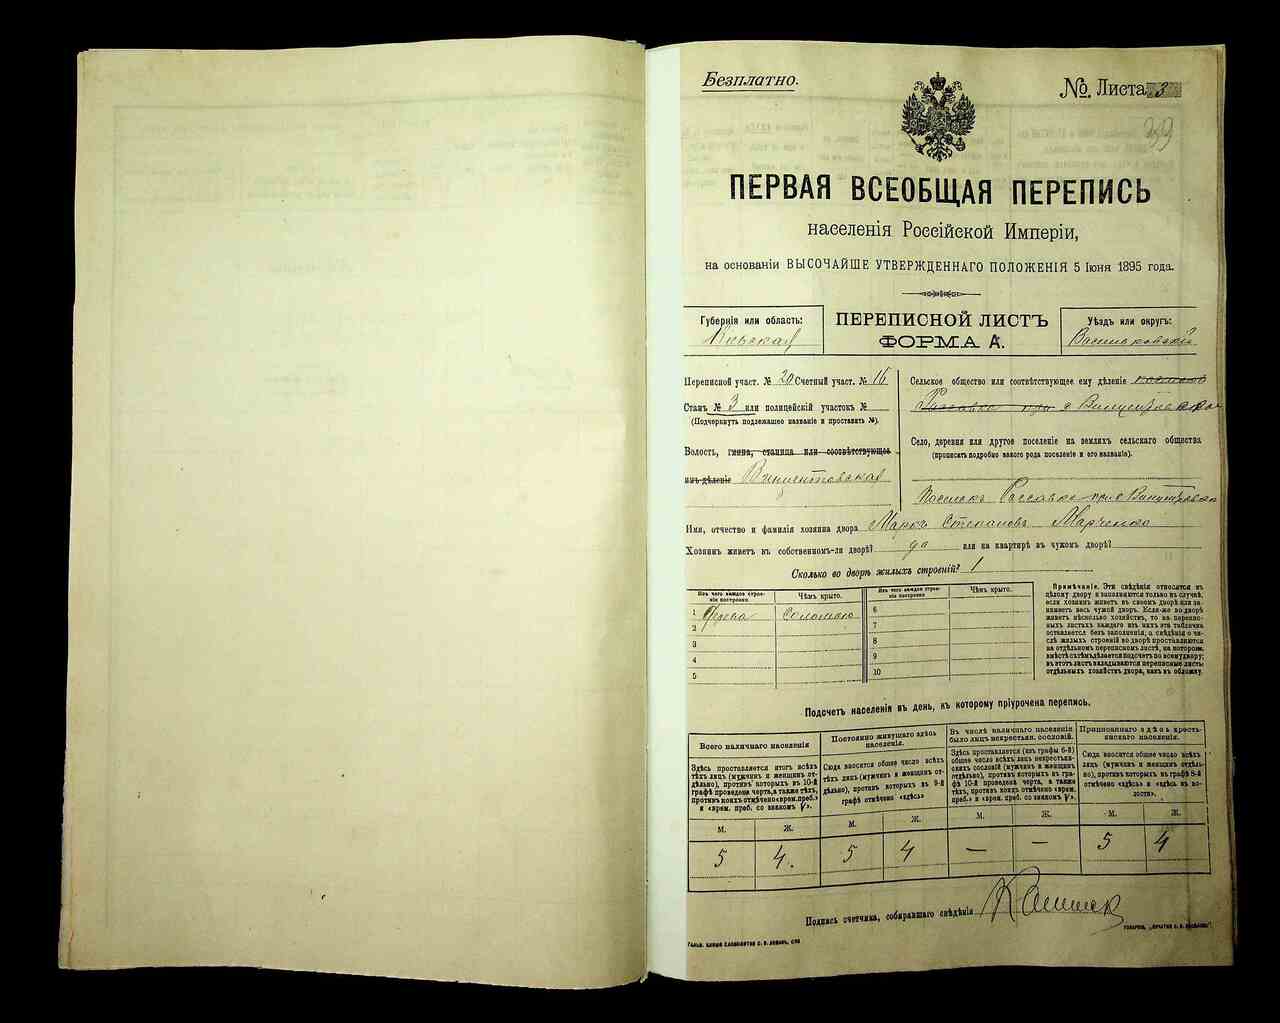 Безплатно.
№ Листа 3
ПЕРВАЯ ВСЕОБЩАЯ ПЕРЕПИСЬ
населенія Россійской Имперіи,
на основаніи ВЫСОЧАЙШЕ УТВЕРЖДЕННАГО ПОЛОЖЕНІЯ 5 Іюня 1895 года.
Губернія или область:
Кіевская
ПЕРЕПИСНОЙ ЛИСТЪ
ФОРМА А.
Уѣздъ или округъ:
Васильковскій
Переписной участ. № 20 Счетный участ. № 16
Станъ № 3 или полицейскій участокъ №
(Подчеркнуть подлежащее названіе и проставить №).
Волость, гмина, станица или соотвѣтствующее
имъ дѣленіе Винцентовская
Сельское общество или соотвѣтствующее ему дѣленіе
Россавка
Село, деревня или другое поселеніе на земляхъ сельскаго общества
(прописать подробно какого рода поселеніе и его названіе).
Поселокъ Россавка при с
Имя, отчество и фамилія хозяина двора Марко Степановъ Марченко
Хозяинъ живетъ въ собственномъ-ли дворѣ? да или на квартирѣ въ чужомъ дворѣ?
Сколько во дворѣ жилыхъ строеній? 1
Изъ чего каждое строеніе построено. Чѣмъ крыто. Изъ чего каждое строеніе построено. Чѣмъ крыто.
1 Дерева Соломою 6
2 7
3 8
4 9
5 10
Примѣчаніе. Эти свѣдѣнія относятся къ
цѣлому двору и заполняются только въ случаѣ,
если хозяинъ живетъ въ своемъ дворѣ или занимаетъ
весь чужой дворъ. Если-же во дворѣ
живетъ нѣсколько хозяйствъ, то на переписныхъ
листахъ каждаго изъ нихъ эта табличка
оставляется безъ заполненія, а свѣдѣнія о числѣ
жилыхъ строеній во дворѣ проставляются
на отдѣльномъ переписномъ листѣ, на которомъ
вмѣстѣ съ тѣмъ дѣлается подсчетъ по всему двору;
въ этотъ листъ вкладываются переписные листы
отдѣльныхъ хозяйствъ двора, какъ въ обложку.
Подсчетъ населенія въ день, къ которому пріурочена перепись.
Всего наличнаго населенія
Здѣсь проставляется итогъ всѣхъ
тѣхъ лицъ (мужчинъ и женщинъ отдѣльно),
противъ которыхъ въ 10-й
графѣ проведена черта, а также тѣхъ,
противъ коихъ отмѣчено «врем. преб.»
и «врем. преб. со знакомъ V».
Постоянно живущаго здѣсь
населенія.
Сюда вносится общее число всѣхъ
тѣхъ лицъ (мужчинъ и женщинъ отдѣльно),
противъ которыхъ въ 9-й
графѣ отмѣчено «здѣсь»
Въ числѣ наличнаго населенія
было лицъ некрестьян. сословій.
Здѣсь проставляется (изъ графы 6-й)
общее число всѣхъ лицъ некрестьянскихъ
сословій (мужчинъ и женщинъ
отдѣльно), противъ которыхъ въ графѣ
10-й проведена черта, а также
тѣхъ, противъ коихъ отмѣчено «врем.
преб.» и «врем. преб. со знакомъ V».
Приписаннаго здѣсь крестьянскаго
населенія.
Сюда вносится общее число всѣхъ
лицъ (мужчинъ и женщинъ отдѣльно),
противъ которыхъ въ графѣ 8-й
отмѣчено «здѣсь» и «здѣсь въ волости».
М. Ж. М. Ж. М. Ж. М. Ж.
5 4. 5 4 — — 5 4
Подпись счетчика, собиравшаго свѣдѣнія